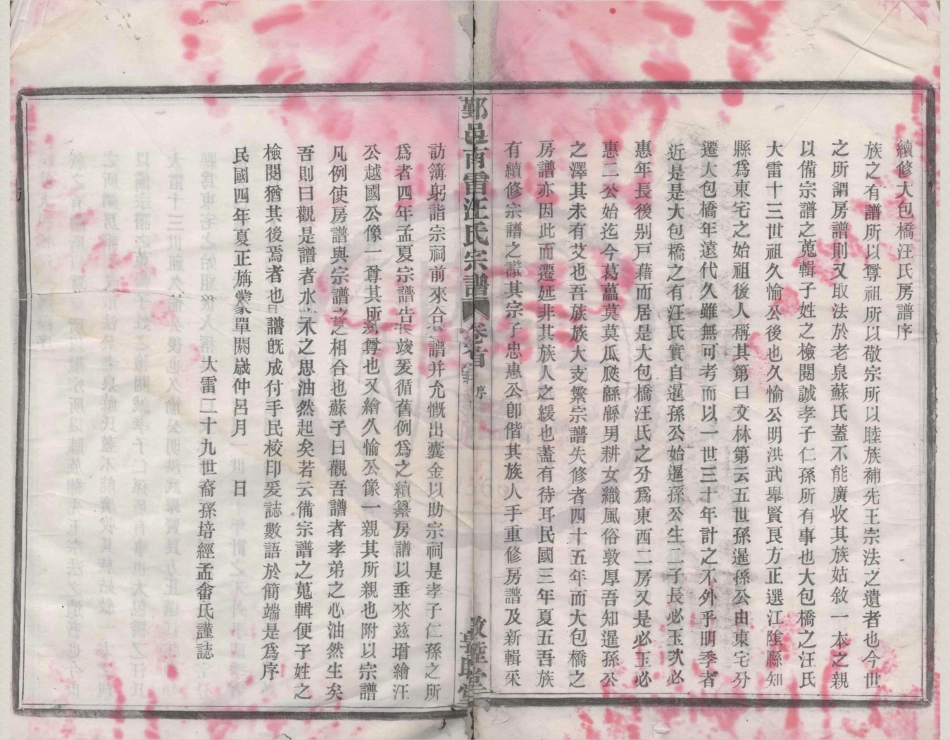 續修大包橋汪氏房譜序
族之有譜所以尊祖所以敬宗所以睦族補先王宗法之遺者也今世
之所謂房譜則又取法於老泉蘇氏蓋不能廣收其族姑敘一本之親
以備宗譜之蒐輯子姓之檢閱誠孝子仁孫所有事也大包橋之汪氏
大雷十三世祖久愉公後也久愉公明洪武舉賢良方正選江陰縣知
縣爲東宅之始祖後人稱其第曰文林第云五世孫暹孫公由東宅分
遷大包橋年遠代久雖無可考而以一世三十年計之不外乎明季者
近是是大包橋之有汪氏實自暹孫公始暹孫公生二子長必玉次必
惠年長後別戸藉而居是大包橋汪氏之分爲東西二房又是必玉必
惠二公始迄今葛藟莫莫瓜瓞緜緜男耕女織風俗敦厚吾知暹孫公
之澤其未有艾也吾族族大支繁宗譜失修者四十五年而大包橋之
房譜亦因此而遷延非其族人之緩也蓋有待耳民國三年夏五吾族
有續修宗譜之議其宗子忠惠公卽偕其族人手重修房譜及新輯采
鄞邑南雷汪氏宗譜 卷首 序
訪簿躬詣宗祠前來合譜并允慨出囊金以助宗祠是孝子仁孫之所
爲者四年孟夏宗譜吿竣爰循舊例爲之續纂房譜以垂來茲增繪汪
公越國公像一尊其所尊也又繪久愉公像一親其所親也附以宗譜
凡例使房譜與宗譜之相合也蘇子曰觀吾譜者孝弟之心油然生矣
吾則曰觀是譜者水木之思油然起矣若云備宗譜之蒐輯便子姓之
檢閱猶其後焉者也譜既成付手民校印爰誌數語於簡端是爲序
民國四年夏正旃蒙單閼歲仲呂月 日
大雷二十九世裔孫培經孟畬氏謹誌